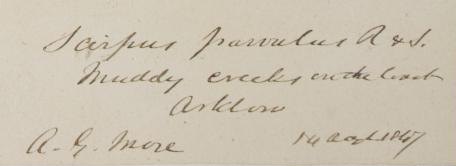 Scirpus parvulus R & S.
Muddy creeks on the coast
Arklow
A. G. More 14 1867